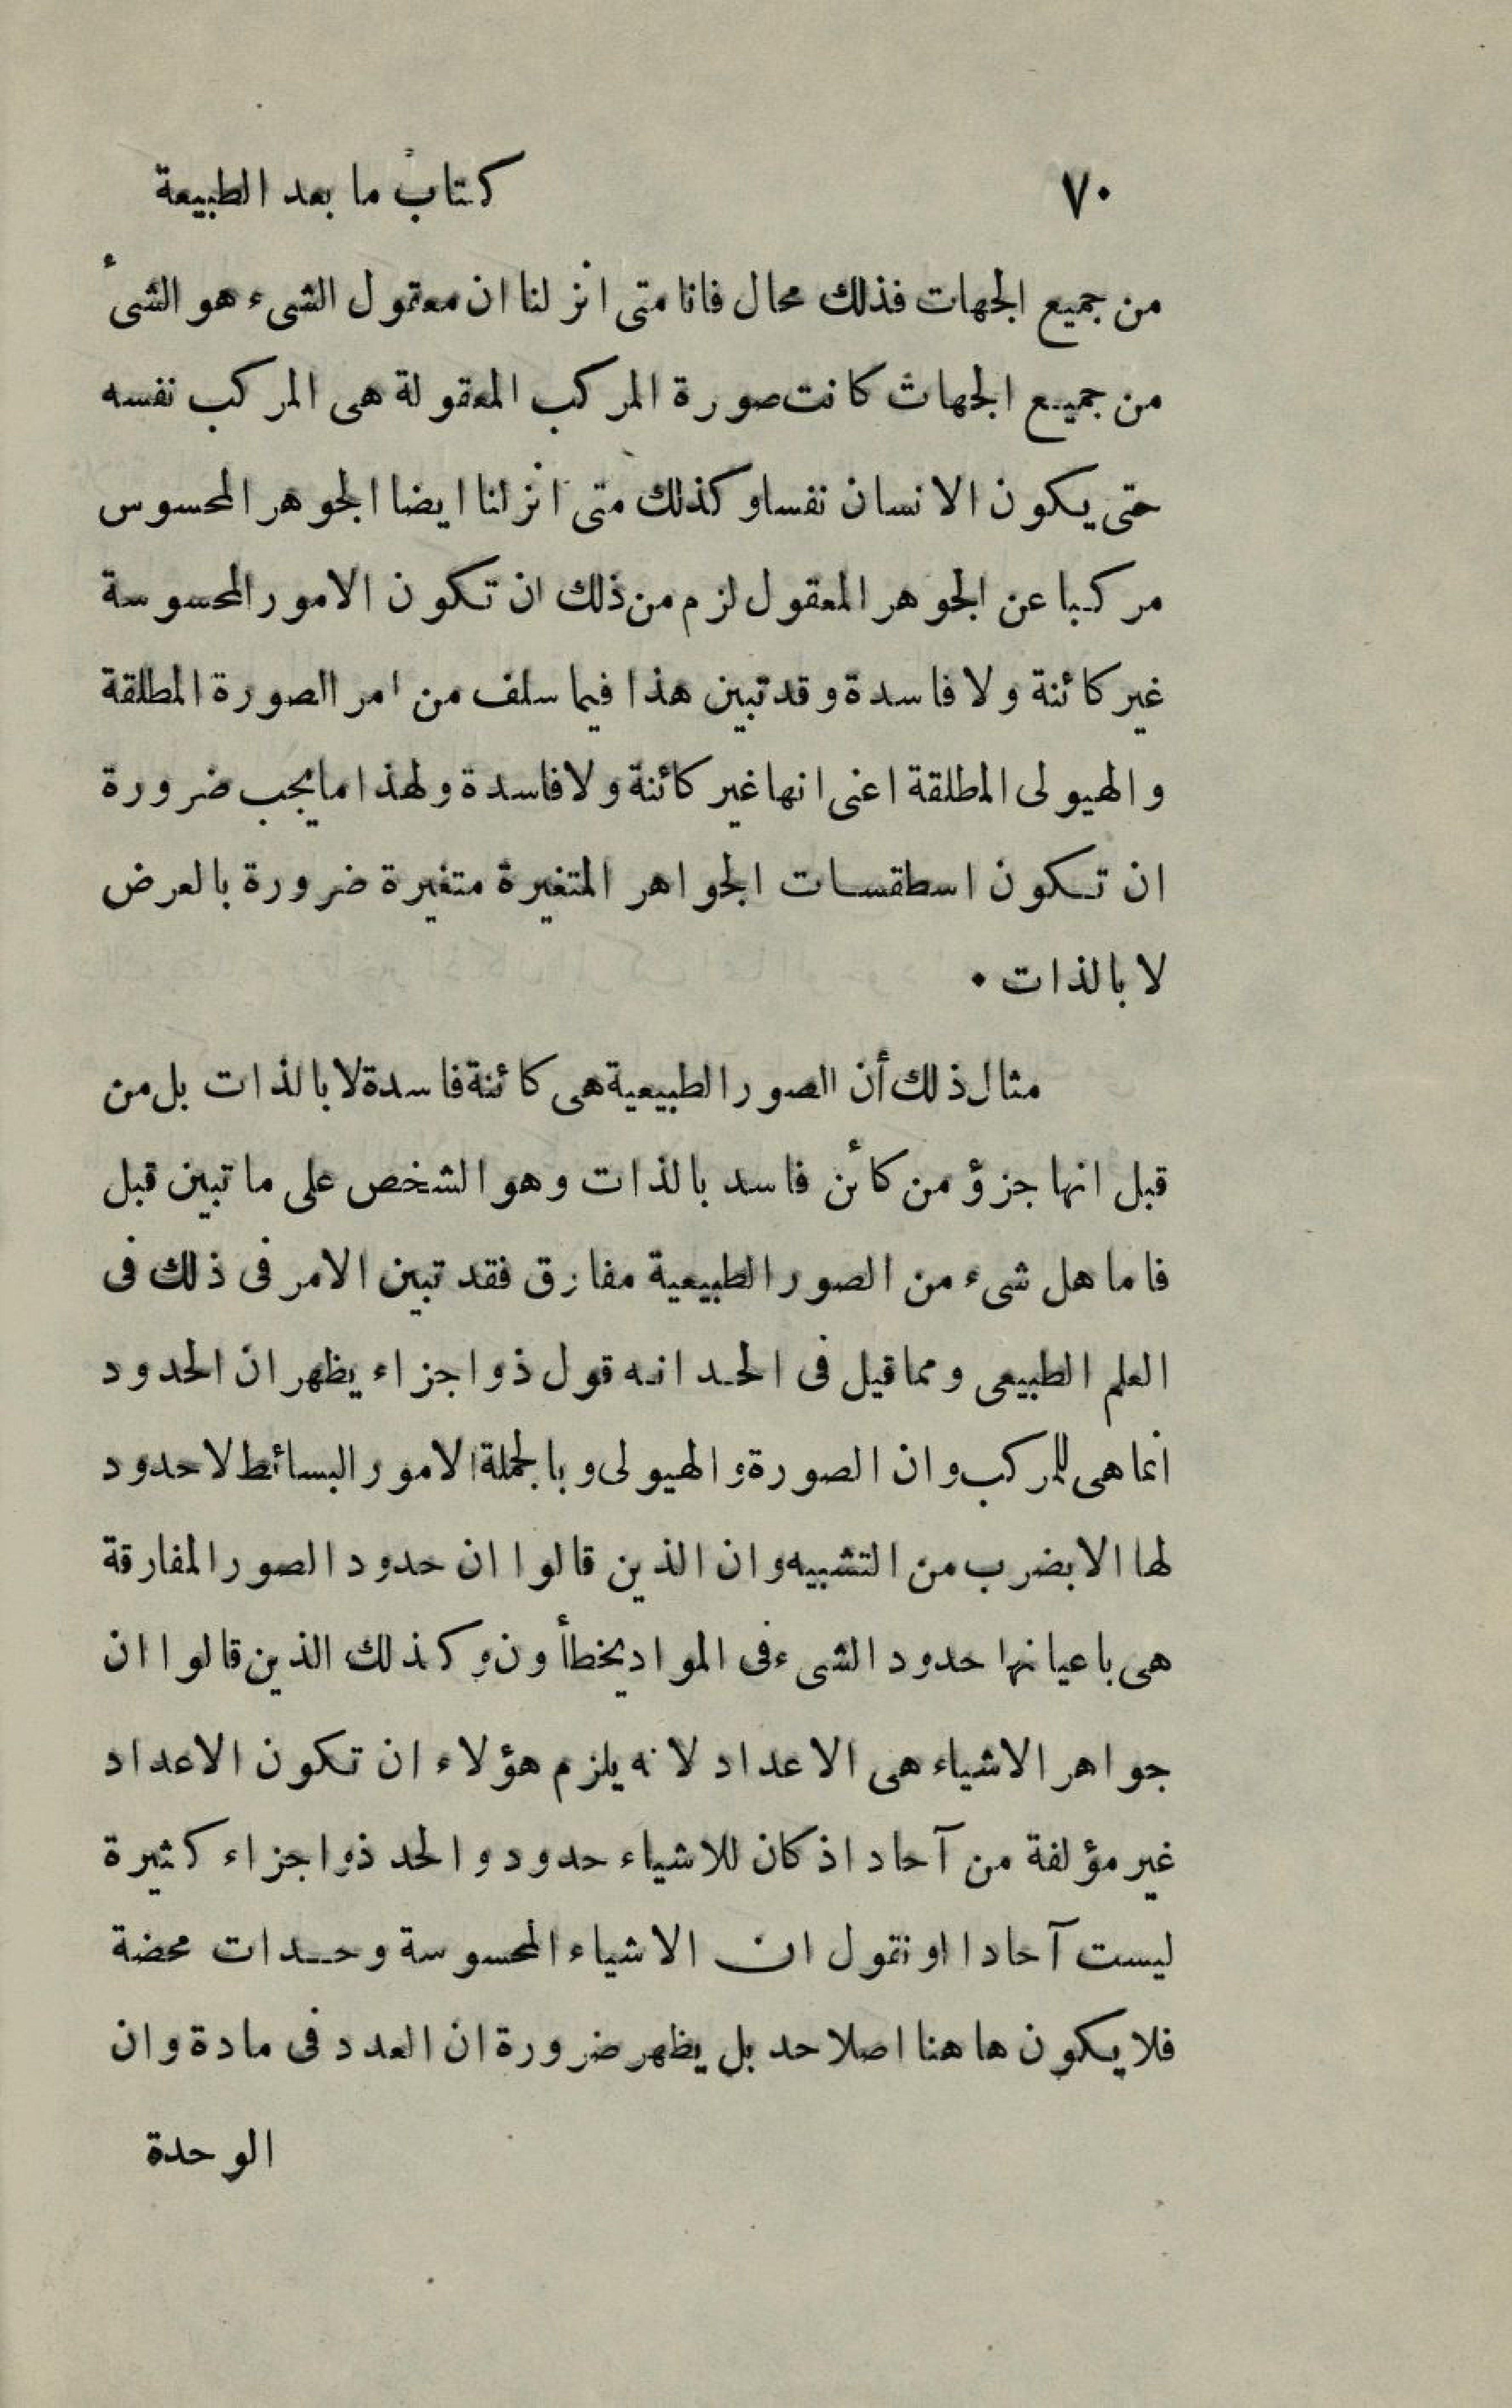 ٧٠ كتاب ما بعد الطبيعة
من جميع الجهات فذلك محال فانا متى انزلنا ان معقول الشىء هو الشىٔ
من جميع الجهات كانت صورة المركب المعقولة هى المركب نفسه
حتى يكون الانسان نفسا وكذلك متى انزلنا ايضا الجوهر المحسوس
مركبا عن الجوهر المعقول لزم من ذلك ان تكون الامور المحسوسة
غير كائنة ولا فاسدة وقد تبين هذا فيما سلف من امر الصورة المطلقة
والهيولى المطلقة اعنى انها غير كائنة ولا فاسدة ولهذا ما يجب ضرورة
ان تكون اسطقسات الجواهر المتغيرة متغيرة ضرورة بالعرض
لا بالذات ٠
مثال ذلك أن الصور الطبيعية هى كائنة فاسدة لا بالذات بل من
قبل انها جزؤ من كائن فاسد بالذات وهو الشخص على ما تبين قبل
فاما هل شىء من الصور الطبيعية مفارق فقد تبين الامر فى ذلك فى
العلم الطبيعى ومما قيل فى الحد انه قول ذو اجزاء يظهر ان الحدود
انما هى للمركب وان الصورة والهيولى وبالجملة الامور البسائط لا حدود
لها الا بضرب من التشبيه وان الذين قالوا ان حدود الصور المفارقة
هى باعيانها حدود الشىء فى المواد يخطأون وكذلك الذين قالوا ان
جواهر الاشياء هى الاعداد لانه يلزم هؤلاء ان تكون الاعداد
غير مؤلفة من آحاد اذ كان للاشياء حدود والحد ذو اجزاء كثيرة
ليست آحادا او نقول ان الاشياء المحسوسة وحدات محضة
فلا يكون هاهنا اصلا حد بل يظهر ضرورة ان العدد فى مادة وان
الوحدة